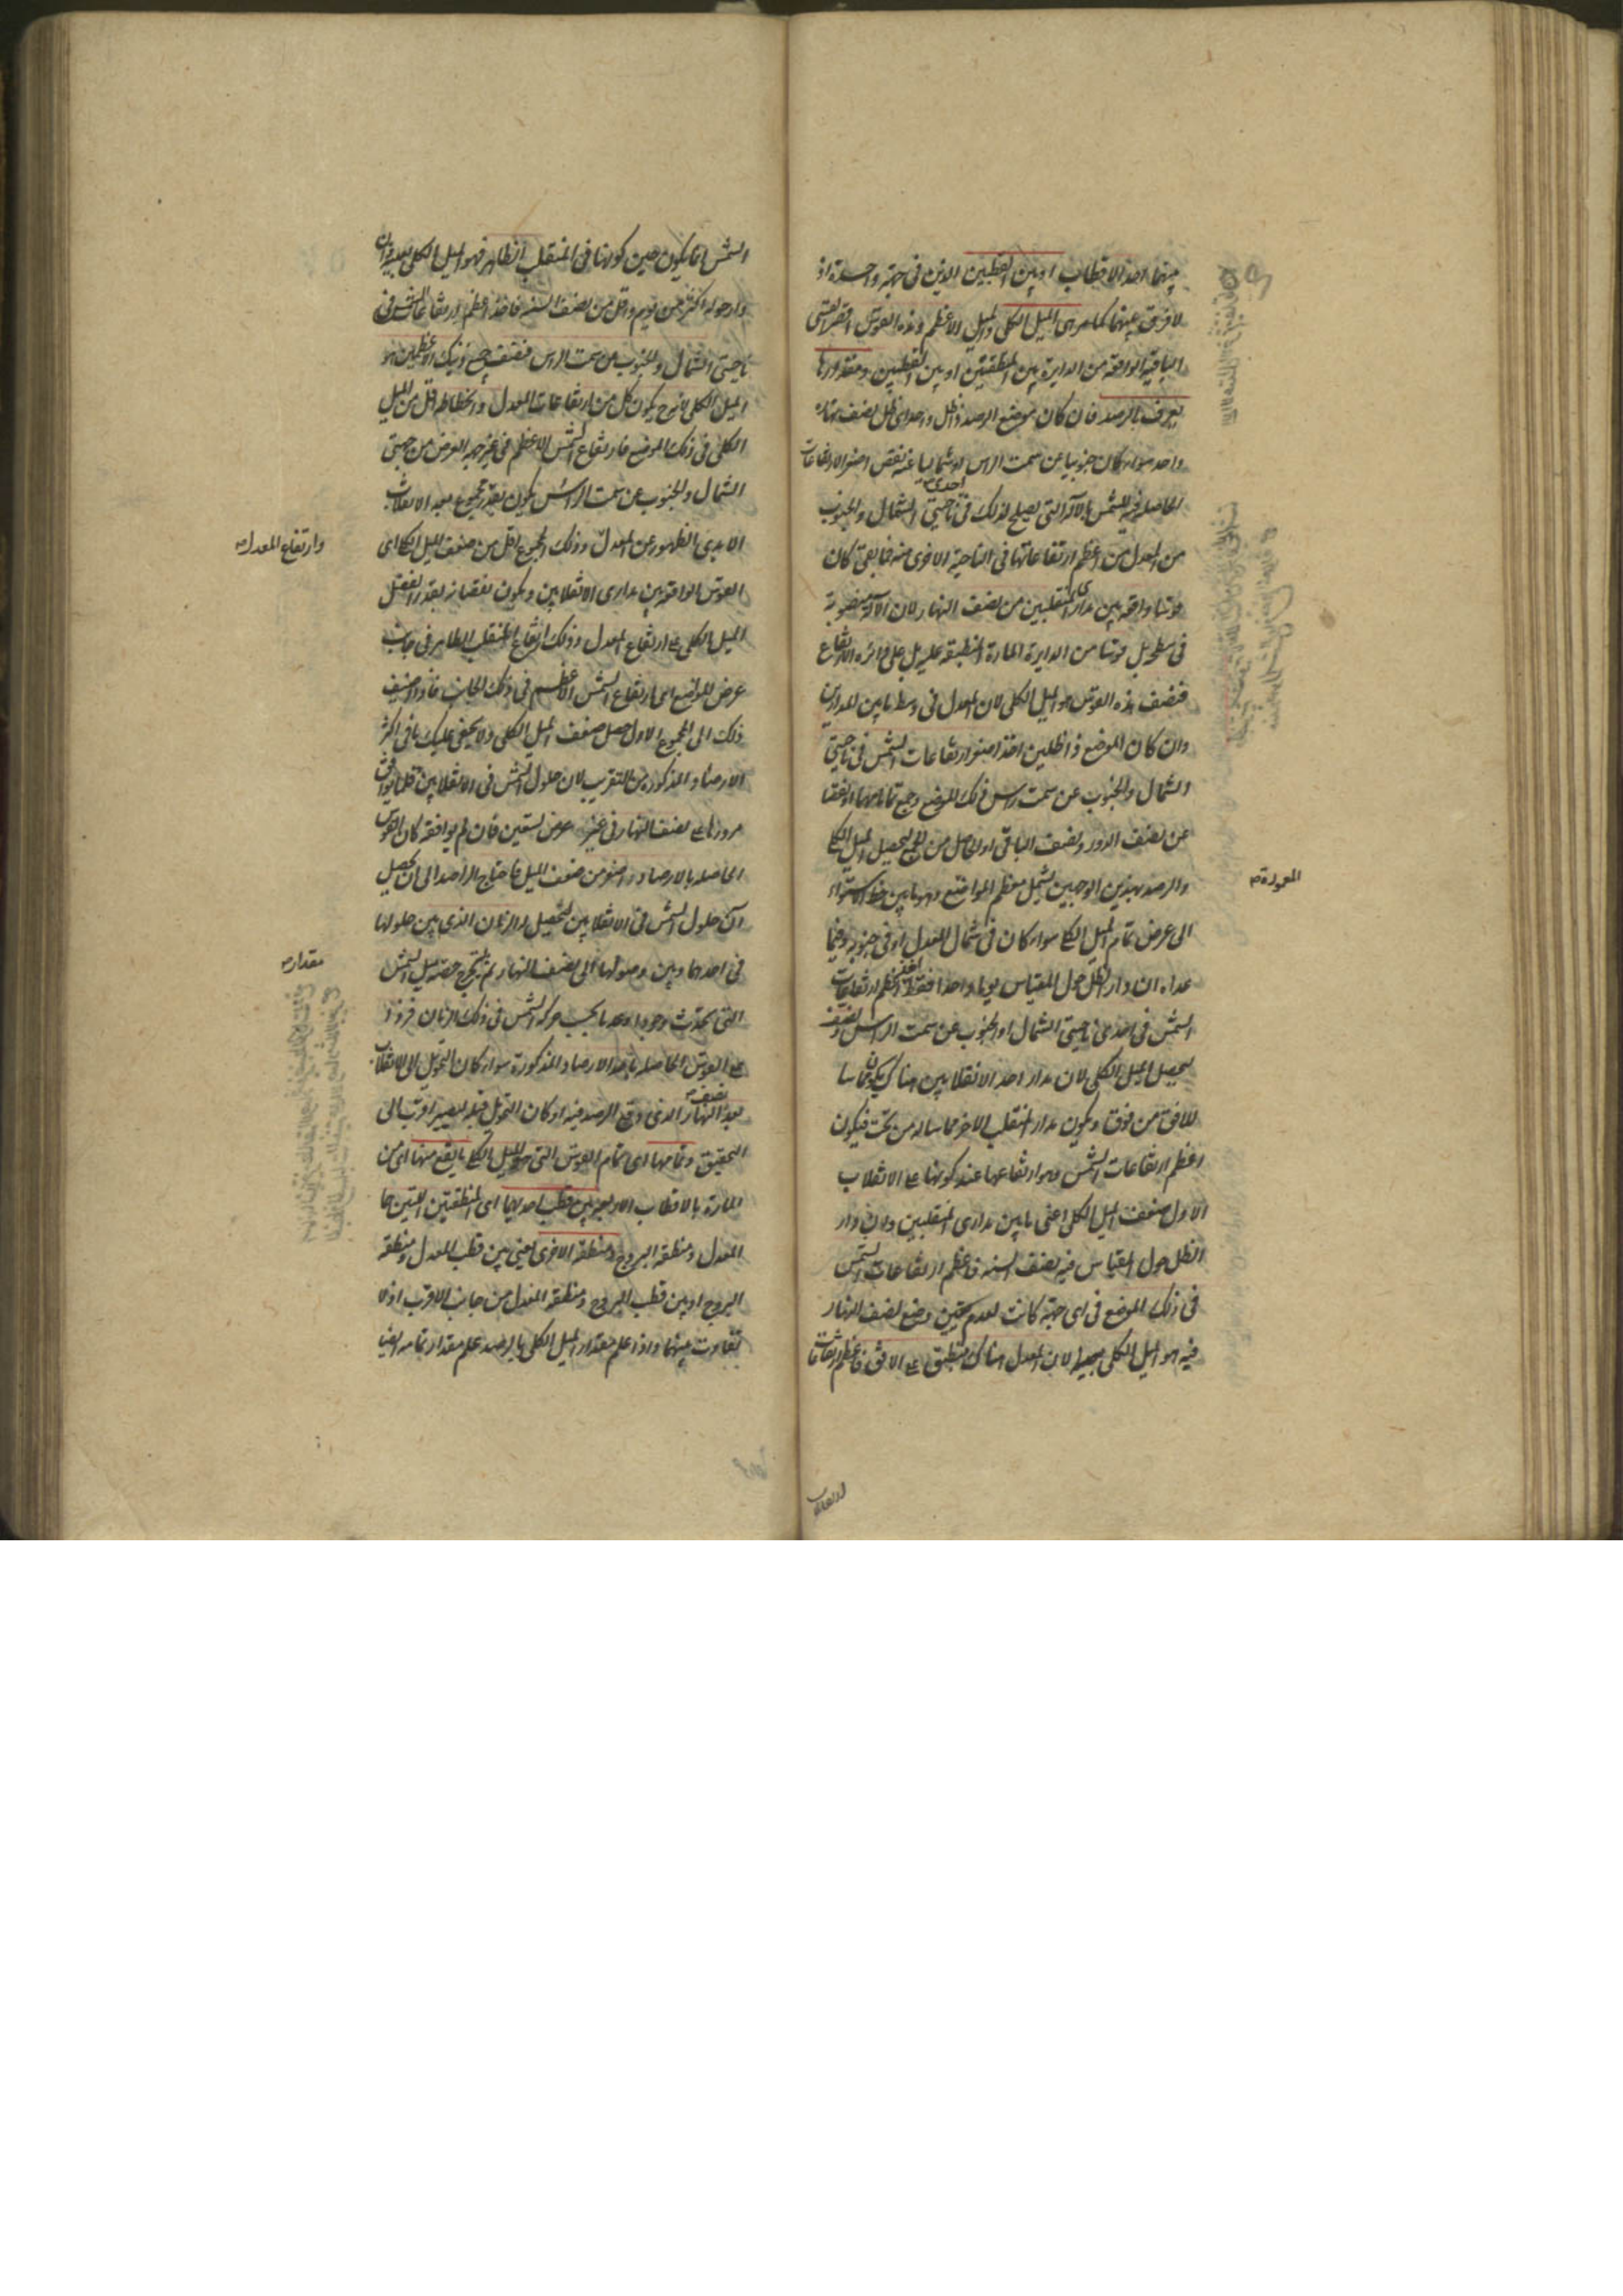 بينهما احد الاقطاب او بين القطبين الذين فى جهة واحدة اذ
لا فرق بينهما كما مر هى الميل الكلى والميل الاعظم وهذه القوس اقصر القسى
الباقية الواقعة من الدايرة بين المنطقتين او بين القطبين ومقدارها
يعرف بالرصد فان كان موضع الرصد ذا ظل واحد اى ظل نصف نهاره
واحد سواء كان جنوبيا عن سمت الراس او شماليا عنه نقص اصغر الارتفاعات
الحاصلة للشمس بالآلة التى يصلح لذلك فى احدى ناحيتى الشمال والجنوب
من المعدل من اعظم ارتفاعاتها فى الناحية الاخرى منه فما بقى كان
قوسا واقعة بين مدارى المنقلبين من نصف النهار لان الآلة منصوبة
فى سطح بل قوسا من الدايرة المارة المنطبقة عليه بل على دائرة الارتفاع
فنصف هذه القوس هو الميل الكلى لان المعدل فى وسط ما بين المدارين
وان كان الموضع ذا ظلين اخذ اصغر ارتفاعات الشمس فى ناحيتى
الشمال والجنوب عن سمت راس ذلك الموضع وجمع تماماهما او نقصا
عن نصف الدور ونصف الباقى او الحاصل من الجمع ليحصل الميل الكلى
والرصد بهذين الوجهين يشمل معظم المواضع وهو ما بين خط الاستواء
المعمورة
الى عرض تمام الميل الكلى سواء كان فى شمال المعدل او فى جنوبه وفيما
عداه ان دار الظل حول المقياس يوما واحدا فقط اخذ اعظم ارتفاعات
الشمس فى احدى ناحيتى الشمال او الجنوب عن سمت الراس ونصف
ليحصل الميل الكلى لان مدار احد الانقلابين هناك يكون مماسا
للافق من فوق ويكون مدار المنقلب الاخر مماسا له من تحت فيكون
اعظم ارتفاعات الشمس وهو ارتفاعها عند كونها على الانقلاب
الاول ضعف الميل الكلى اعنى ما بين مدارى المنقلبين وان دار
الظل حول المقياس فيه نصف السنة فاعظم ارتفاعات الشمس
فى ذلك الموضع فى اى جهة كانت لعدم تعين وضع لنصف النهار
فيه هو الميل الكلى بعينه لان المعدل هناك منطبق على الافق فاعظم ارتفاعات
الشمس انما يكون حين كونها فى المنقلب الظاهر فهو الميل الكلى بعينه وان
دار حوله اكثر من يوم واقل من نصف السنة فاخذ اعظم ارتفاعات الشمس فى
ناحيتى الشمال والجنوب عن سمت الراس فنصف جميع ذينك الاعظمين هو
الميل الكلى لانه ح يكون كل من ارتفاعات المعدل وانحطاطه اقل من الميل
الكلى فى ذلك الموضع فارتفاع الشمس الاعظم فى غير جهة العرض من جهتى
الشمال والجنوب عن سمت الراس يكون بقدر مجموع بعد الانقلاب
الابدى الظهور عن المعدل وذلك المجموع اقل من ضعف الميل الكلى اى
وارتفاع المعدل
القوس الواقعة بين مدارى الانقلابين ويكون نقصانه بقدر فضل
الميل الكلى على ارتفاع المعدل وذلك ارتفاع المنقلب الظاهر فى جانب
عرض الموضع اى ارتفاع الشمس الاعظم فى ذلك الجانب فاذا اضيف
ذلك الى المجموع الاول حصل ضعف الميل الكلى ولا يخفى عليك ما فى اكثر
الارصاد المذكورة من التقريب لان حلول الشمس فى الانقلابين قلما يوافق
مرورها على نصف النهار فى غير عرض تسعين فان لم يوافقه كان القوس
الحاصلة بالارصاد اصغر من ضعف الميل فاحتاج الراصد الى ان يحصل
آن حلول الشمس فى الانقلابين لتحصيل الزمان الذى بين حلولها
فى احدهما وبين وصولها الى نصف النهار ثم يستخرج حصة ميل الشمس
مقدار
التى تحدث وجودا وعدما بحسب حركة الشمس فى ذلك الزمان فزد
على القوس الحاصلة باحد الارصاد المذكورة سواء كان التحويل الى الانقلاب
بعد نصف النهار الذى وقع الرصد فيه او كان التحويل قبله ليصير اقرب الى
التحقيق وتمامها اى تمام القوس التى هى الميل الكلى ما يقع منها اى من
المارة بالاقطاب الاربعة بين قطب احديهما اى المنطقتين اللتين هما
المعدل ومنطقة البروج ومنطقة الاخرى يعنى بين قطب المعدل ومنطقة
البروج او بين قطب البروج ومنطقة المعدل من جانب الاقرب اذ لا
تفاوت بينهما واذا علم مقدار الميل الكلى بالرصد علم مقدار تمامه ايضا